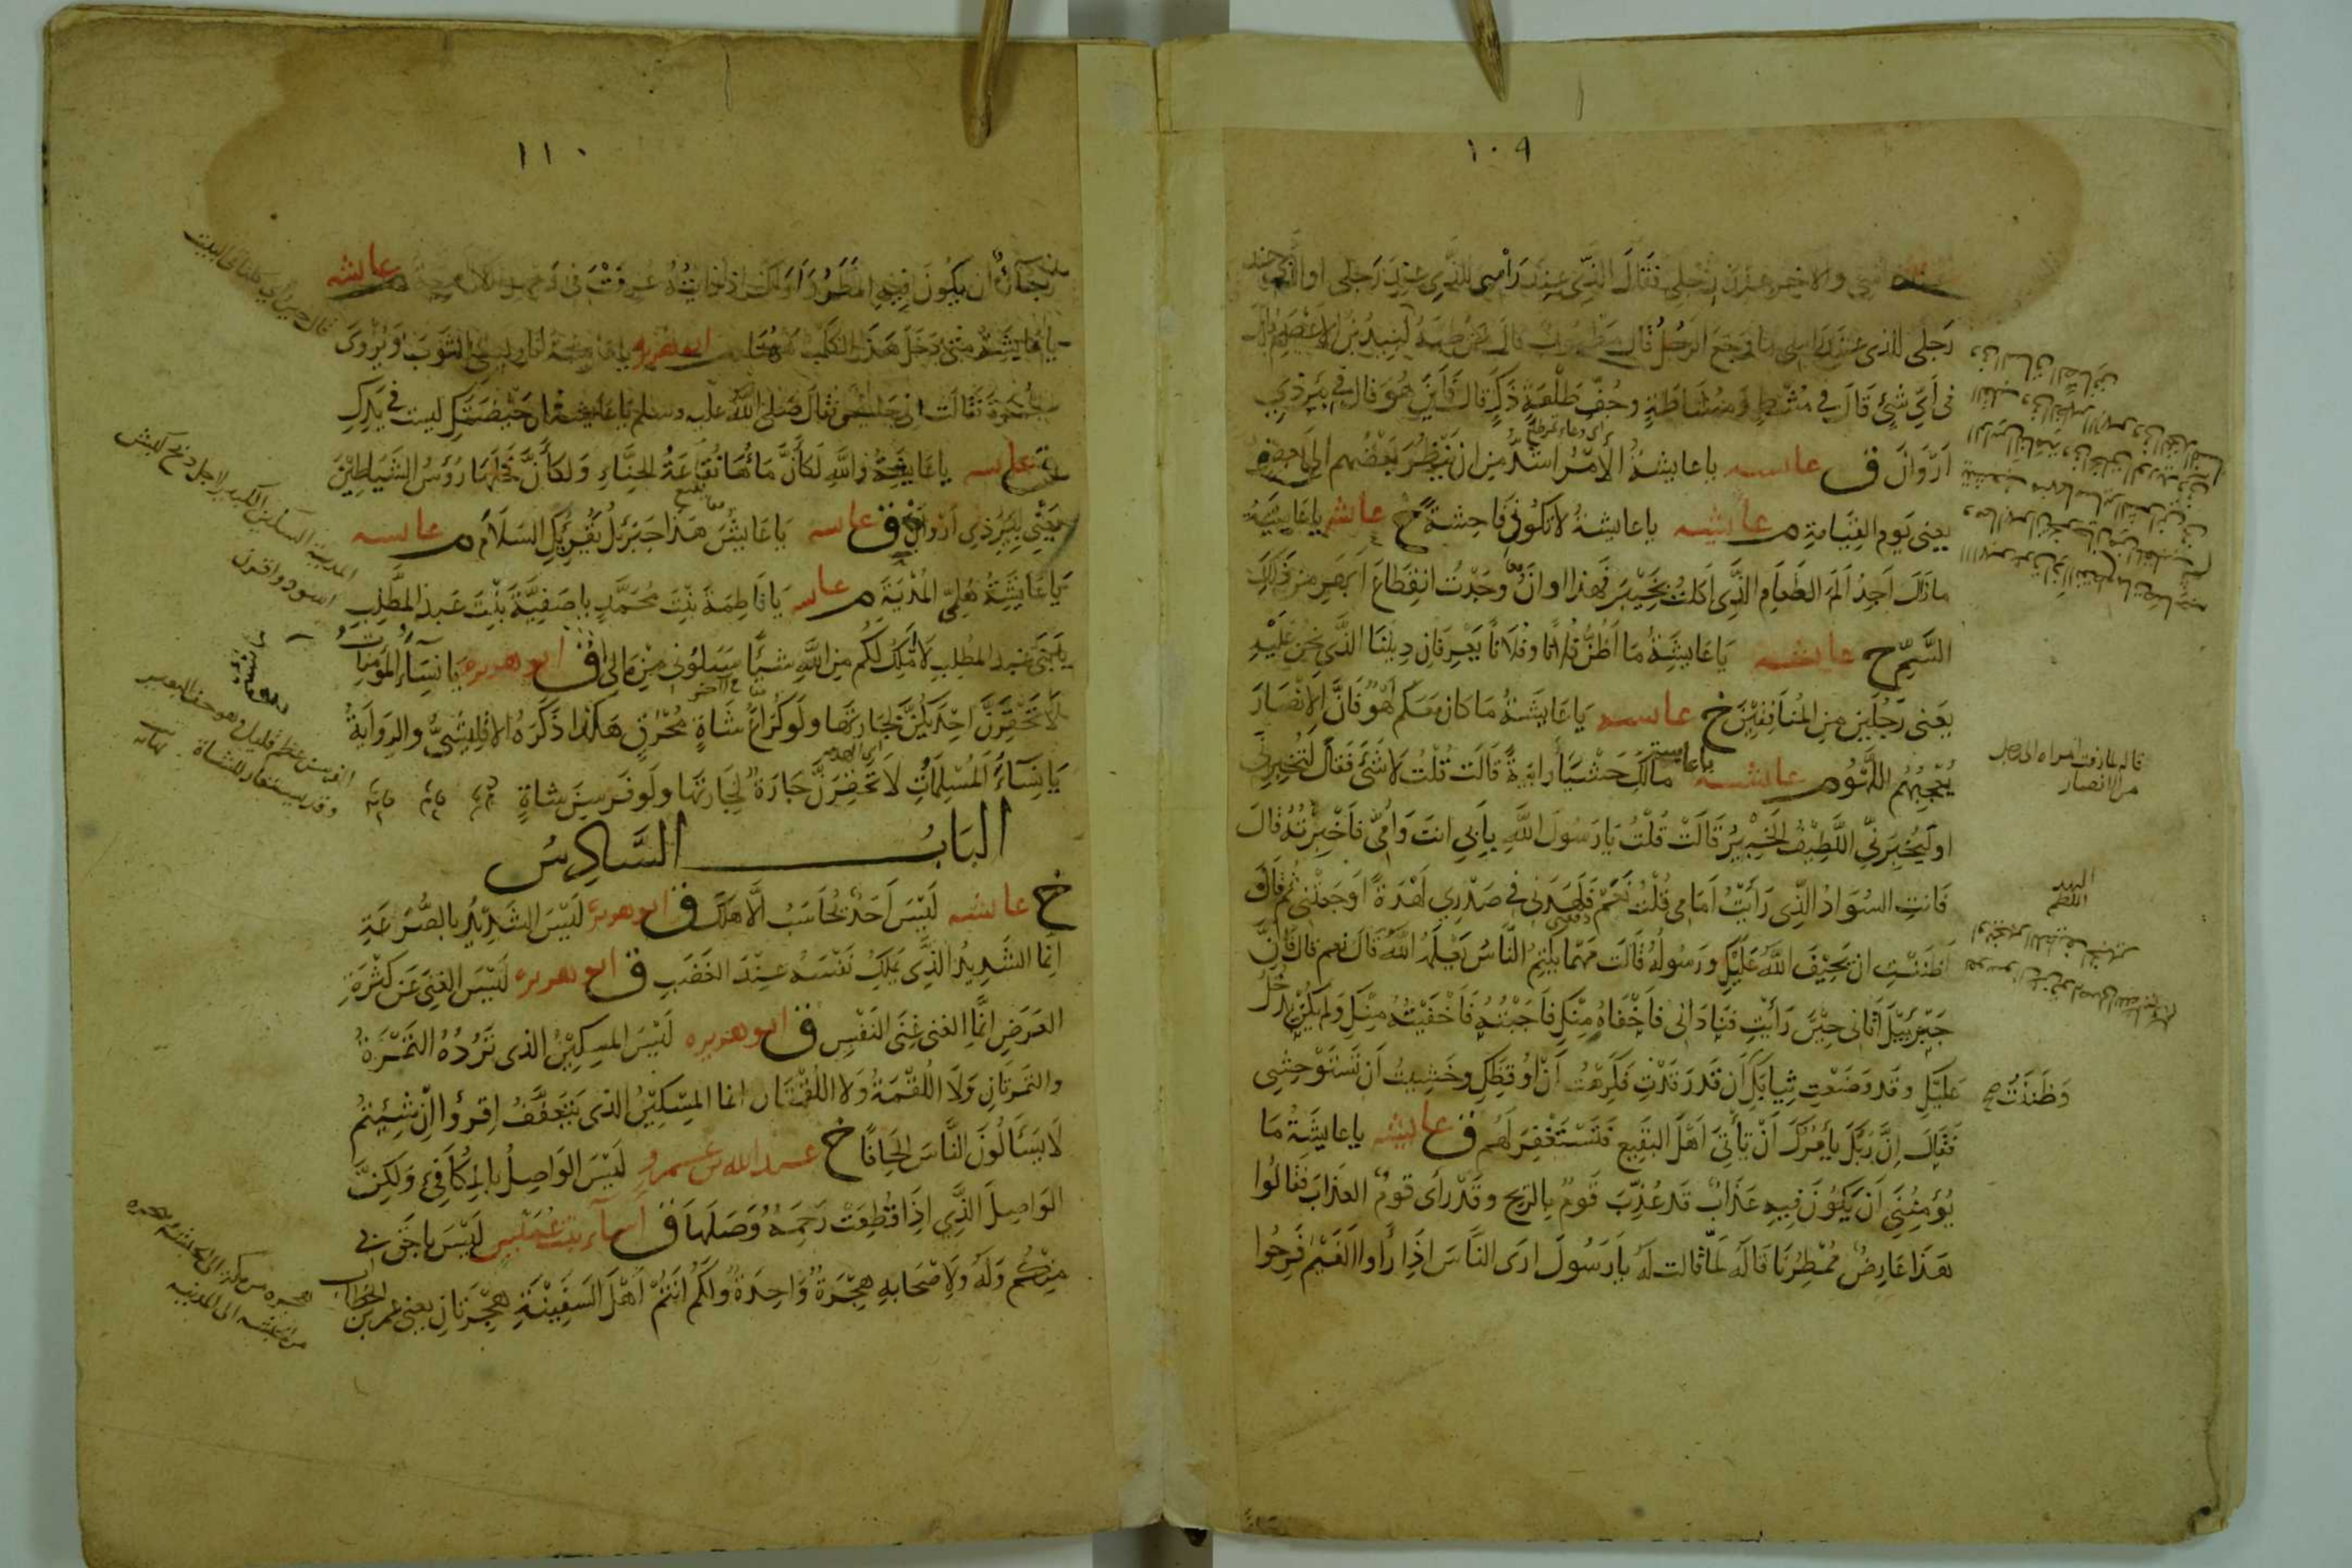 ١٠٩
والاخر عند رجلي فقال الذي عند رأسي للذي عند رجلي او الذي عند
رجلي للذي عند راسي ما وجع الرجل قال مطبوب قال من طبه لبيد بن الاعصم قال
في اَيِّ شَيْءٍ قَالَ في مُشْطٍ وَمُشَاطَةٍ وجُفِّ طَلْعَةِ ذَكَرٍ قال فَأَيْنَ هُوَ قال في بِئرِ ذي
اَرْوَانَ ق عايشه ياعايشةُ الاَمْرُ اشدُّ مِنْ ان يَنْظُرَ بَعْضُهم الى بعض
يعنى يَومَ القِيَامةِ م عايشه ياعايشةُ لاتَكُونِي فَاحِشَةً خ عايشه ياعَايِشَةُ
مازَالَ اَجِدُ اَلَمَ الطَعَامِ الَّذِي اَكَلتُ بِخَيْبَرَ فَهذا اوانُ وجَدْتُ انقِطَاعَ اَبهَرِي مِنْ ذَلِكَ
السَّمِّ خ عايشه يَاعَايشَةُ مَا اَظُنُّ فُلانًا وفُلَانًا يَعْرِفَانِ دِينَنَا الَّذي نحْنُ عَلَيْهِ
يعَنى رَجُلَينِ مِنَ المُنَافِقِيْنَ خ عايشه يَاعَايشَةُ مَا كَانَ مَعَكم لَهْوٌ فَانَّ الاَنْصَارَ
يُعْجِبُهُم اللَّهْوُ م عايشه ياعايشه مَالَكِ حَشْيَا رابيةً قَالَت قُلْت لاشَئَ فَقَالَ لَتُخْبِرِنّي
اولَيُخْبِرَنِّي اللَّطِيْفُ الخَبِيْرُ قَالَتْ قُلْتُ يَارَسُولَ اللهِ بِأَبِي انتَ وَأُمّي فَاَخْبَرْتُهُ قَالَ
فَانتِ السَّوَادُ الَّذِي رَأَيْتُ اَمَامِي قُلْتُ نَعَمْ فَلَهَدَنِي في صَدْرِي لَهْدَةً اَوجَعَتْنِي ثم قَالَ
اَظَنَنْتِ ان يَحِيْفَ اللهُ عَلَيْكِ وَرَسُولُهُ قَالَت مَهْمَا يَكْتُمِ النَّاسُ يَعْلَمْهُ اللهُ قَالَ نعم قال فَانَّ
جَبْرَئيْلَ اَتَانِى حِيْنَ رَأَيْتِ فَنَادَانِى فاَخْفَاهُ مِنْكِ فَاَجَبْتُهُ فَاَخْفَيْتُهُ مِنْكِ وَلم يَكُنْ يَدْخُلُ
عَلَيْكِ وقَد وَضَعْتِ ثِيابَكِ وَظَنَنْتُ اَن قَد رَقَدْتِ فَكَرِهْتُ اَنْ اُوقِظَكِ وخَشِيتُ اَن تَسْتَوْحِشِي
فَقَالَ اِنَّ رَبَّكَ يَأمُرُكَ اَنْ تَأْتِيَ اَهْلَ البَقِيعِ فَتَسْتَغْفِرَ لَهُم ق عايشه ياعايشَة مَا
يُؤمِنُنِي اَنْ يَكُونَ فِيهِ عَذَابٌ قد عُذِّبَ قَومٌ بالريح وقَدْ رَأى قومٌ العذَابَ فقَالُوا
هَذَا عَارِضٌ مُمْطِرُنَا قَالَهُ لَمّا قالت لَهُ يارَسُولَ ارَى النَّاسَ اذَا رَأوا الغَيْمَ فَرِحُوا
قاله لما زفت امراه الى رجل
من الانصار
اللهد
اللطم
١١٠
رَجَاءَ اَن يَكُونَ فِيهِ المَطَرُ وَاَراكَ اذا رَأيْتَهُ عُرِفَتْ فى وَجْهِكَ الكَرَاهِيَة م عايشه
ياعَايِشَةُ مَتَى دَخَلَ هَذَا الكَلْبُ هَهُنَا م ابو هريره ياعايشةُ ناوليني الثوبَ ويُرْوَى
الخُمرَةَ فقَالَت اني حايض فقَالَ صَلى اللهُ عليه وسلم ياعَايشة ان حَيْضَتَكِ ليست في يَدِكِ
ق عايشه ياعَايشةُ واللهِ لَكَأَنَّ مَاءَهَا نُقَاعَةُ الحِنَّاءِ وَلَكَأَنَّ نخلَهَا رُؤُسُ الشَّيَاطِيْنَ
يَعْنِي بِئْرَ ذِي اَرْوَانَ ق عايشه يَاعَايشُ هَذَا جَبْرَئيلُ يُقْرِئُكِ السَّلَامَ م عايشه
يَاعَايِشَةُ هَلُمِّي المُدْيَةَ م عايشه يَافَاطِمَةُ بِنْتَ مُحَمَّدٍ ياصَفِيَّةُ بِنْتَ عَبدِ المطَّلِبِ
يابَنى عَبدِ المطلبِ لَااَمْلِكُ لَكُم مِنَ اللهِ شَيْئًا سَلُونِى مِنْ مَالِى ق ابو هريره يَانِسَاءَ المؤمِنَاتِ
لاَتَحْقِرَنَّ اِحْدَيكُنَّ لجَارَتهَا ولو كُرَاعَ شَاةٍ مُحْرَقٍ هَكَذَا ذَكَرَهُ الاقْلِيْشِيُّ والرِوَايَةُ
يَانِسَاءَ المُسْلِمَاتِ لاَتَحْقِرَنَّ جَارَةٌ لجَارَتهَا ولَو فِرسِنَ شَاةٍ
البَابُ السَّادِسُ
خ عايشه لَيْسَ اَحَدٌ يُحَاسَبُ اِلَّا هَلَكَ ق ابو هريره لَيْسَ الشَدِيْدُ بالصُّرَعَةِ
اِنَّمَا الشَدِيدُ الَّذِي يَملِكُ نَفْسَهُ عِنْدَ الغَضَبِ ق ابو هريره لَيْسَ الغِنَى عَن كَثْرَةِ
العَرَضِ اِنَّمَا الغِنى غِنَى النَفْسِ ق ابوهريره لَيْسَ المِسكِيْنُ الذى تَرُدُّهُ التَمْرَةُ
والتَمرَتَانِ وَلاَ اللُقْمَةُ وَلا اللُقْمَتَان انما المِسْكِيْنُ الذى يَتَعَفَّفُ اِقرؤا اِنْ شِئتُم
لَايَسْأَلُونَ النَّاسَ اِلحَافًا خ عبد الله بن عمرو لَيْسَ الوَاصِلُ بالمُكَافِئِ وَلَكِنَّ
الوَاصِلَ الَّذِي اِذَا قُطِعَتْ رَحِمُهُ وَصَلَهَا ق اسماء بنت عُمَيْسٍ لَيْسَ بِاَحَقَّ بي
مِنْكُم وَلَهُ ولاَصْحَابِهِ هِجْرَةٌ وَاحِدَةٌ وَلَكُم اَنْتُمْ اَهْلَ السَفِيْنَةِ هِجْرَتَانِ يعنى عمر بن الخطاب
المدينة
اسود واقرن